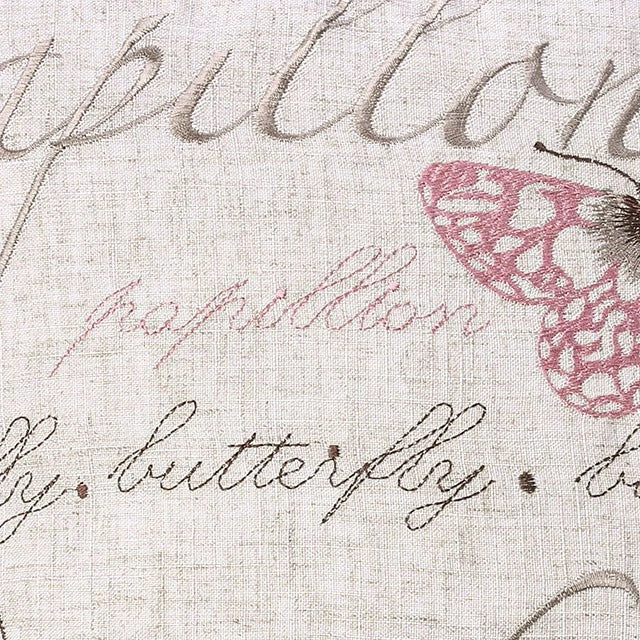 papillon
papillon
fly. butterfly. b